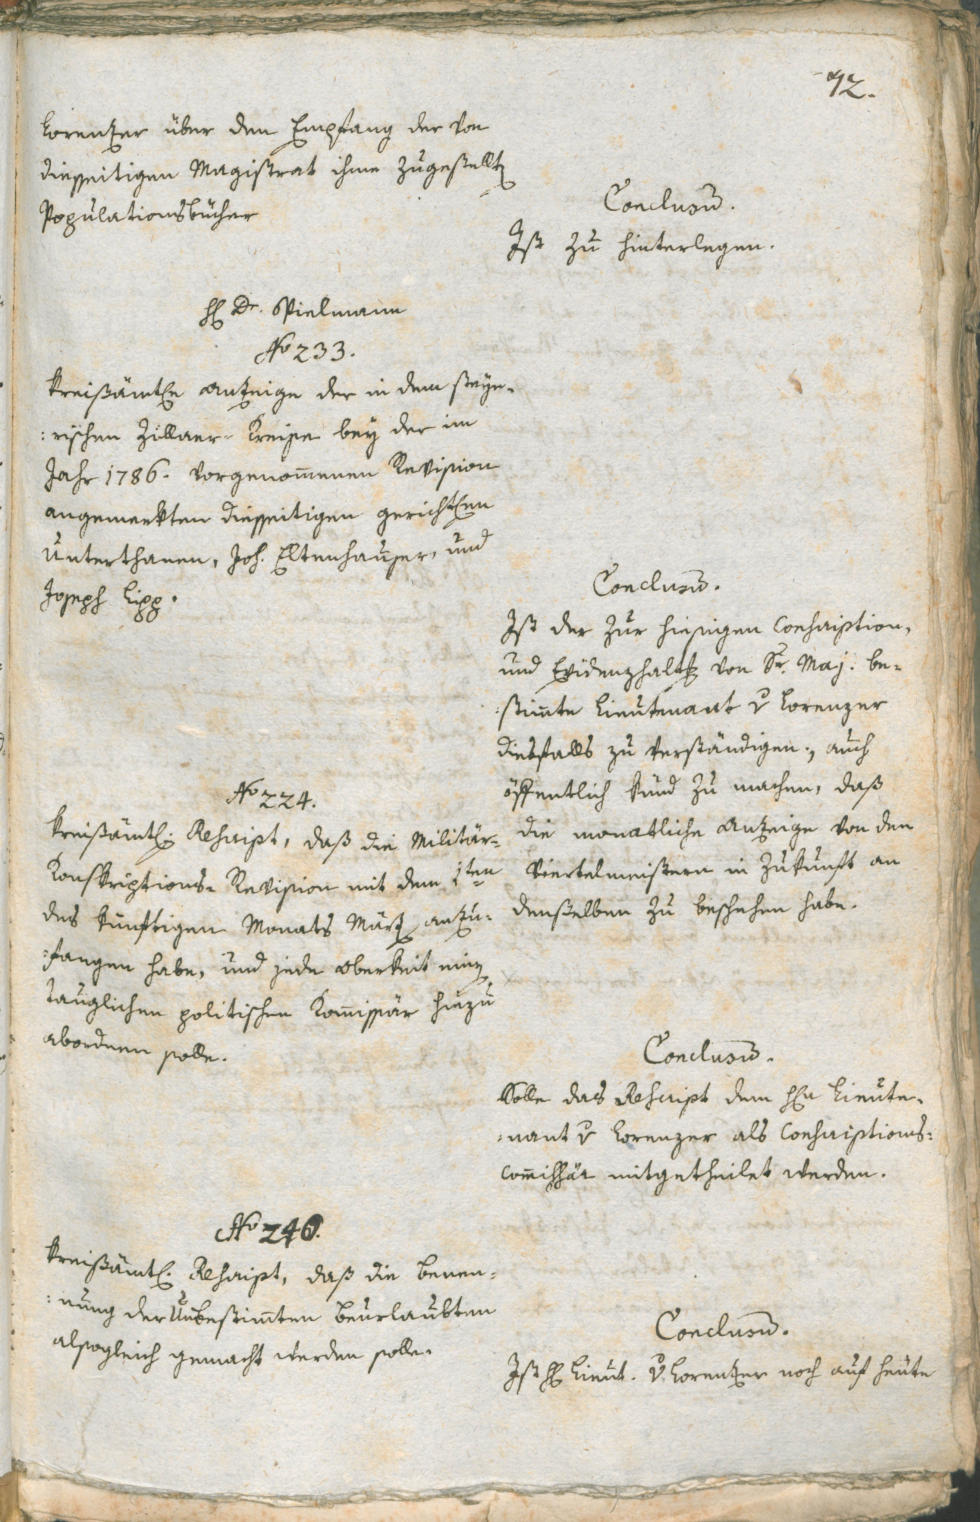 72.
Lorentzer über den Empfang der von
dießeitigen Magistrat ihme zugestellt
Populationsbücher
Conclusum.
Ist zu hinterlegen.
H Dr. Spielmann
No 233.
Kreißämtle Anzeige der in dem steye-
:rischen Zillaer-Kreise bey der im
Jahr 1786. vorgenommenen Revision
angemerkten dießeitigen gerichtlen
Unterthanen, Joh. Eltenhauser, und
Joseph Lipp.
Conclusum.
Ist der zur hiesigen Conscription,
und Evidenzhaltg von Sr. Maj. be-
:stimmte Lieutenant v Lorenzer
diesfalls zu verständigen, auch
öffentlich kund zu machen, daß
die monatliche Anzeige von den
Viertelmeistern in Zukunft an
denselben zu beschehen habe.
No 224.
Kreißämtl. Rescript, daß die Militär-
Konskriptions-Revision mit dem 1ten
des künftigen Monats März anzu-
:fangen habe, und jede Oberkeit einen
tauglichen politischen Kommissär hinzu
abordnen solle.
Conclusum.
Solle das Rescript dem Hrn Lieute-
:nant v Lorenzer als Conscriptions-
Commissär mitgetheilet werden.
No 240.
Kreißämtl. Rescript, daß die Benen-
:nung der Unbestimmten Beurlaubten
alsogleich gemacht werden solle.
Conclusum.
Ist H Lieut. v. Lorentzer noch auf heute